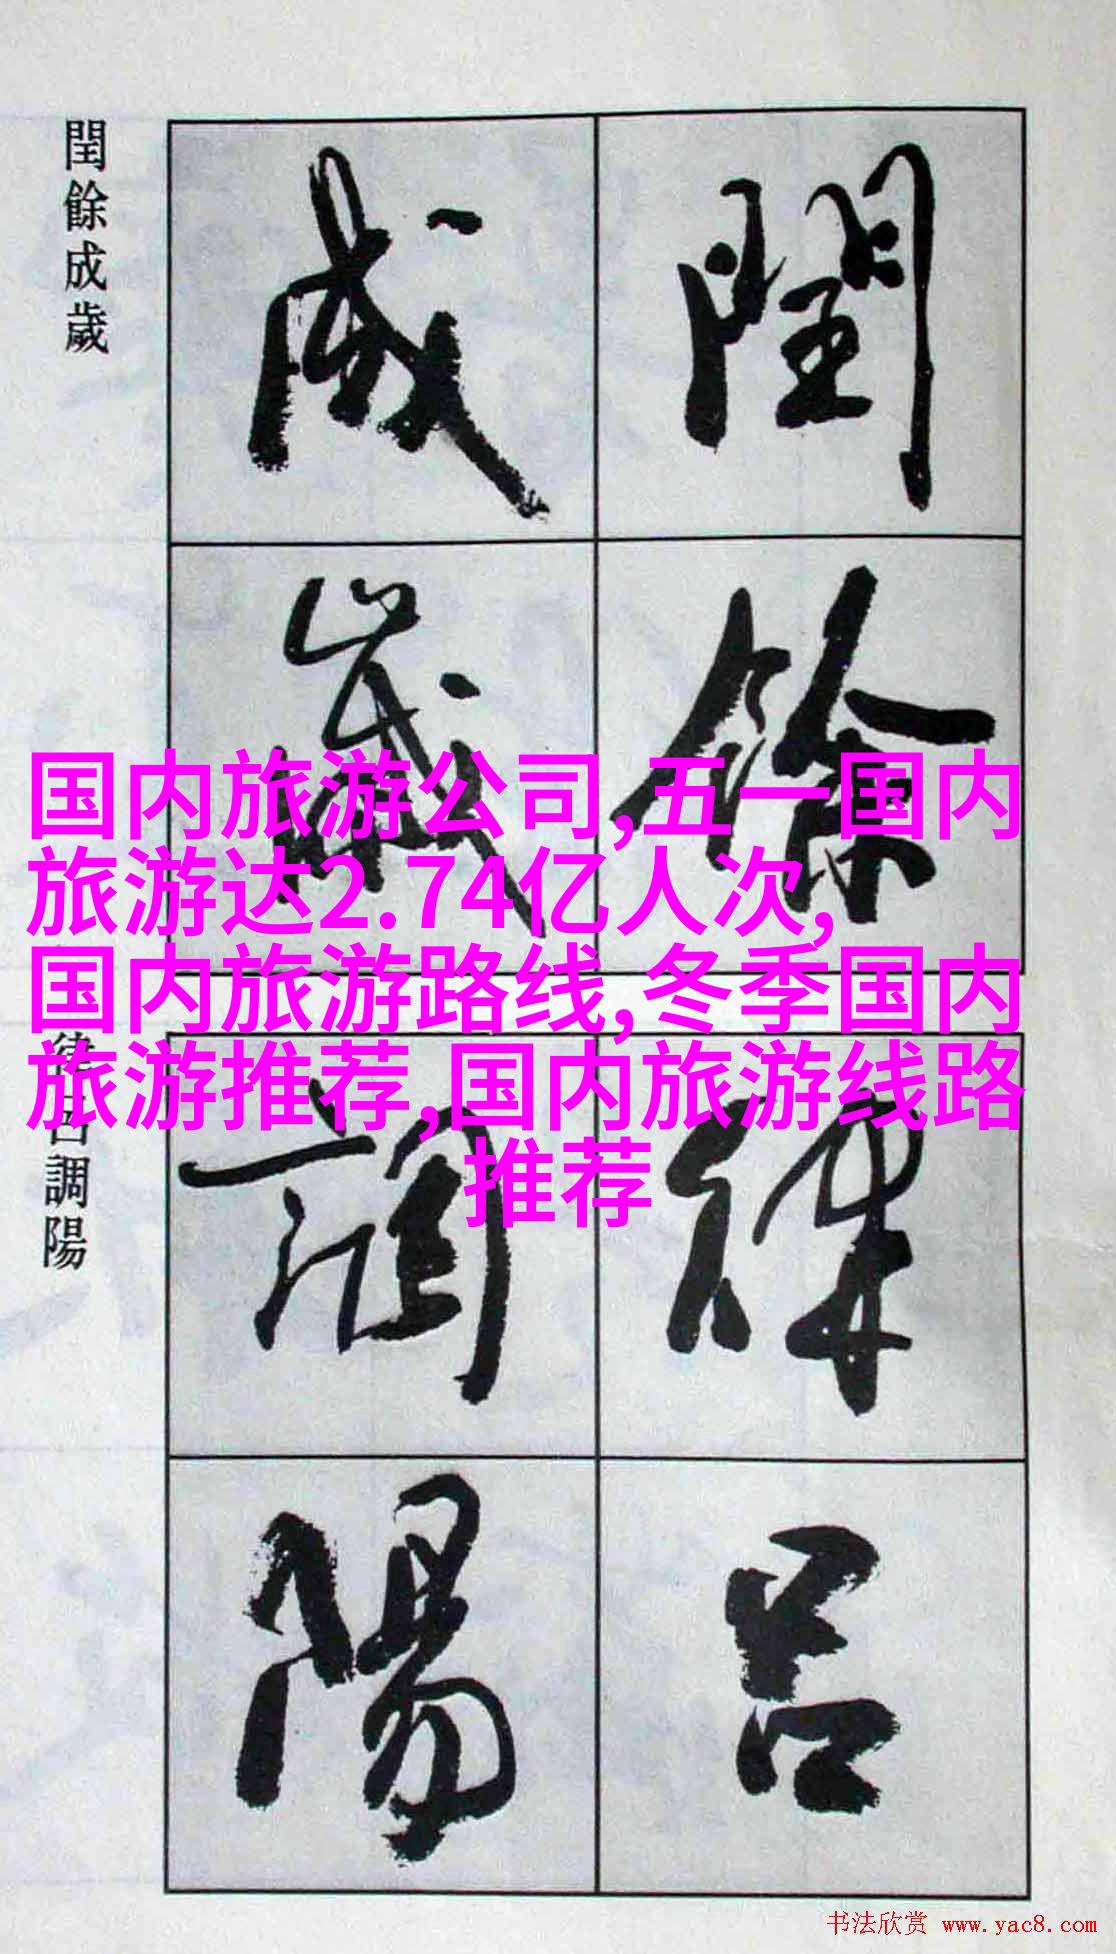 閏餘成歲
閏餘
成歲
国内旅游公司,五一国内
旅游达2.74亿人次,
国内旅游路线,冬季国内
旅游推荐,国内旅游线路
推荐
律呂調陽
律呂
調陽
书法欣赏 www.yac8.com